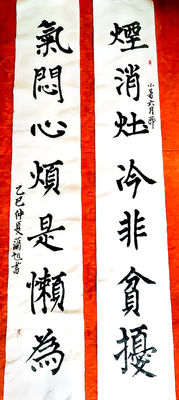 煙消灶冷非貧擾
小暑六月節
氣悶心煩是懶為
乙巳仲夏書